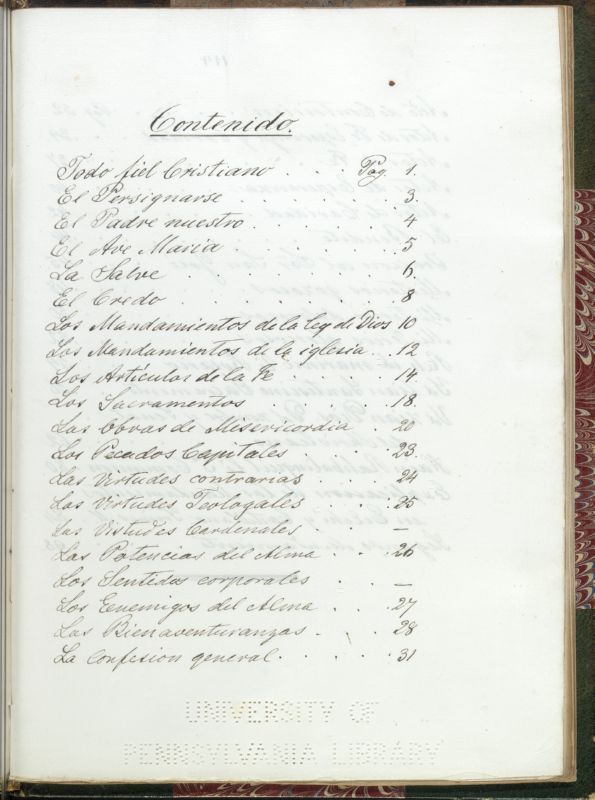 Contenido.
Todo fiel Cristiano . . . Pag. 1.
El Persignarse . . . . . . 3.
El Padre nuestro . . . . . 4
El Ave Maria . . . . . . 5
La Salve . . . . . . 6.
El Credo . . . . . . 8
Los Mandamientos de la ley de Dios 10
Los Mandamientos de la iglesia . . 12
Los Artículos de la Fe . . . . 14
Los Sacramentos . . . . . 18
Las Obras de Misericordia . 20
Los Pecados Capitales . . . . 23
Las Virtudes contrarias . . . 24
Las Virtudes Teologales . . . 25
Las Virtudes Cardenales . . . —
Las Potencias del Alma . . . 26
Los Sentidos corporales . . . —
Los Eenemigos del Alma . . . 27
Las Bienaventuranzas . . . 28
La Confesion general . . . . 31
UNIVERSITY OF
PENNSYLVANIA LIBRARY